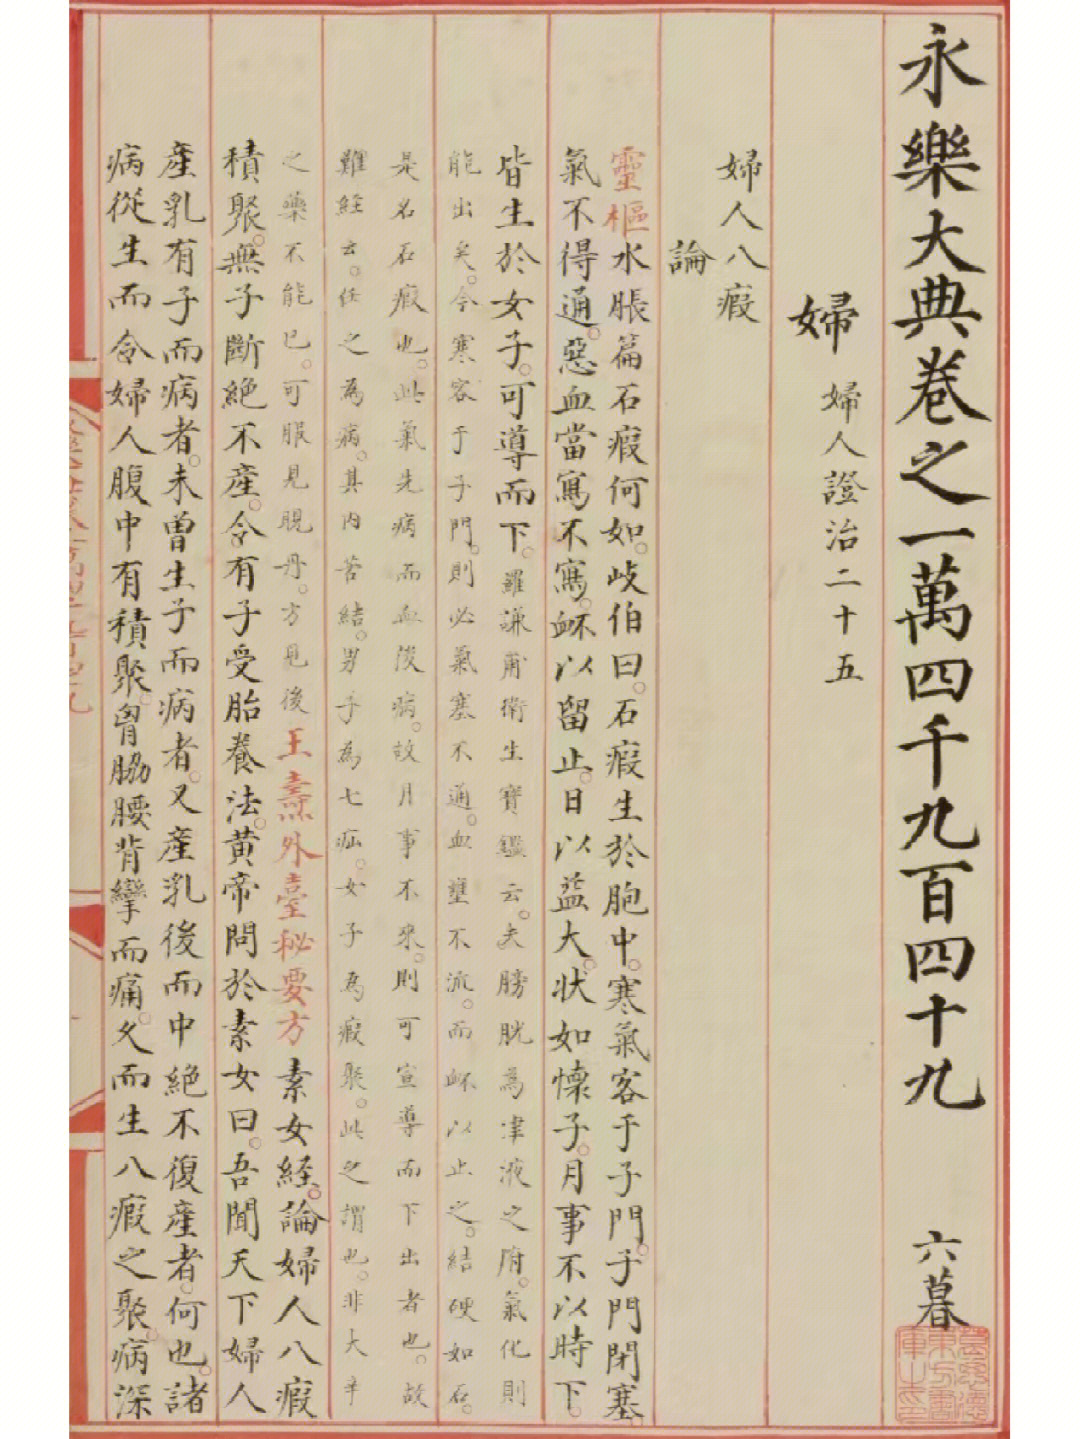 永樂大典卷之一萬四千九百四十九 六暮
婦 婦人證治二十五
婦人八瘕
論
靈樞水脹篇石瘕何如。岐伯曰。石瘕生於胞中。寒氣客于子門。子門閉塞。
氣不得通。惡血當寫不寫。衃以留止。日以益大。狀如懷子。月事不以時下。
皆生於女子。可導而下。羅謙甫衛生寶鑑云。夫膀胱為津液之府。氣化則
能出矣。今寒客于子門。則必氣塞不通。血壅不流。而衃以止之。結硬如石。
是名石瘕也。此氣先病而血後病。故月事不來。則可宣導而下出者也。故
難經云。任之為病。其內苦結。男子為七疝。女子為瘕聚。此之謂也。非大辛
之藥不能已。可服見睍丹。方見後王燾外臺秘要方素女經。論婦人八瘕
積聚。無子斷絕不產。令有子受胎養法。黃帝問於素女曰。吾聞天下婦人
產乳有子而病者。未曾生子而病者。又產乳後而中絕不復產者。何也。諸
病從生而令婦人腹中有積聚。胷脇腰背攣而痛。久而生八瘕之聚。病深